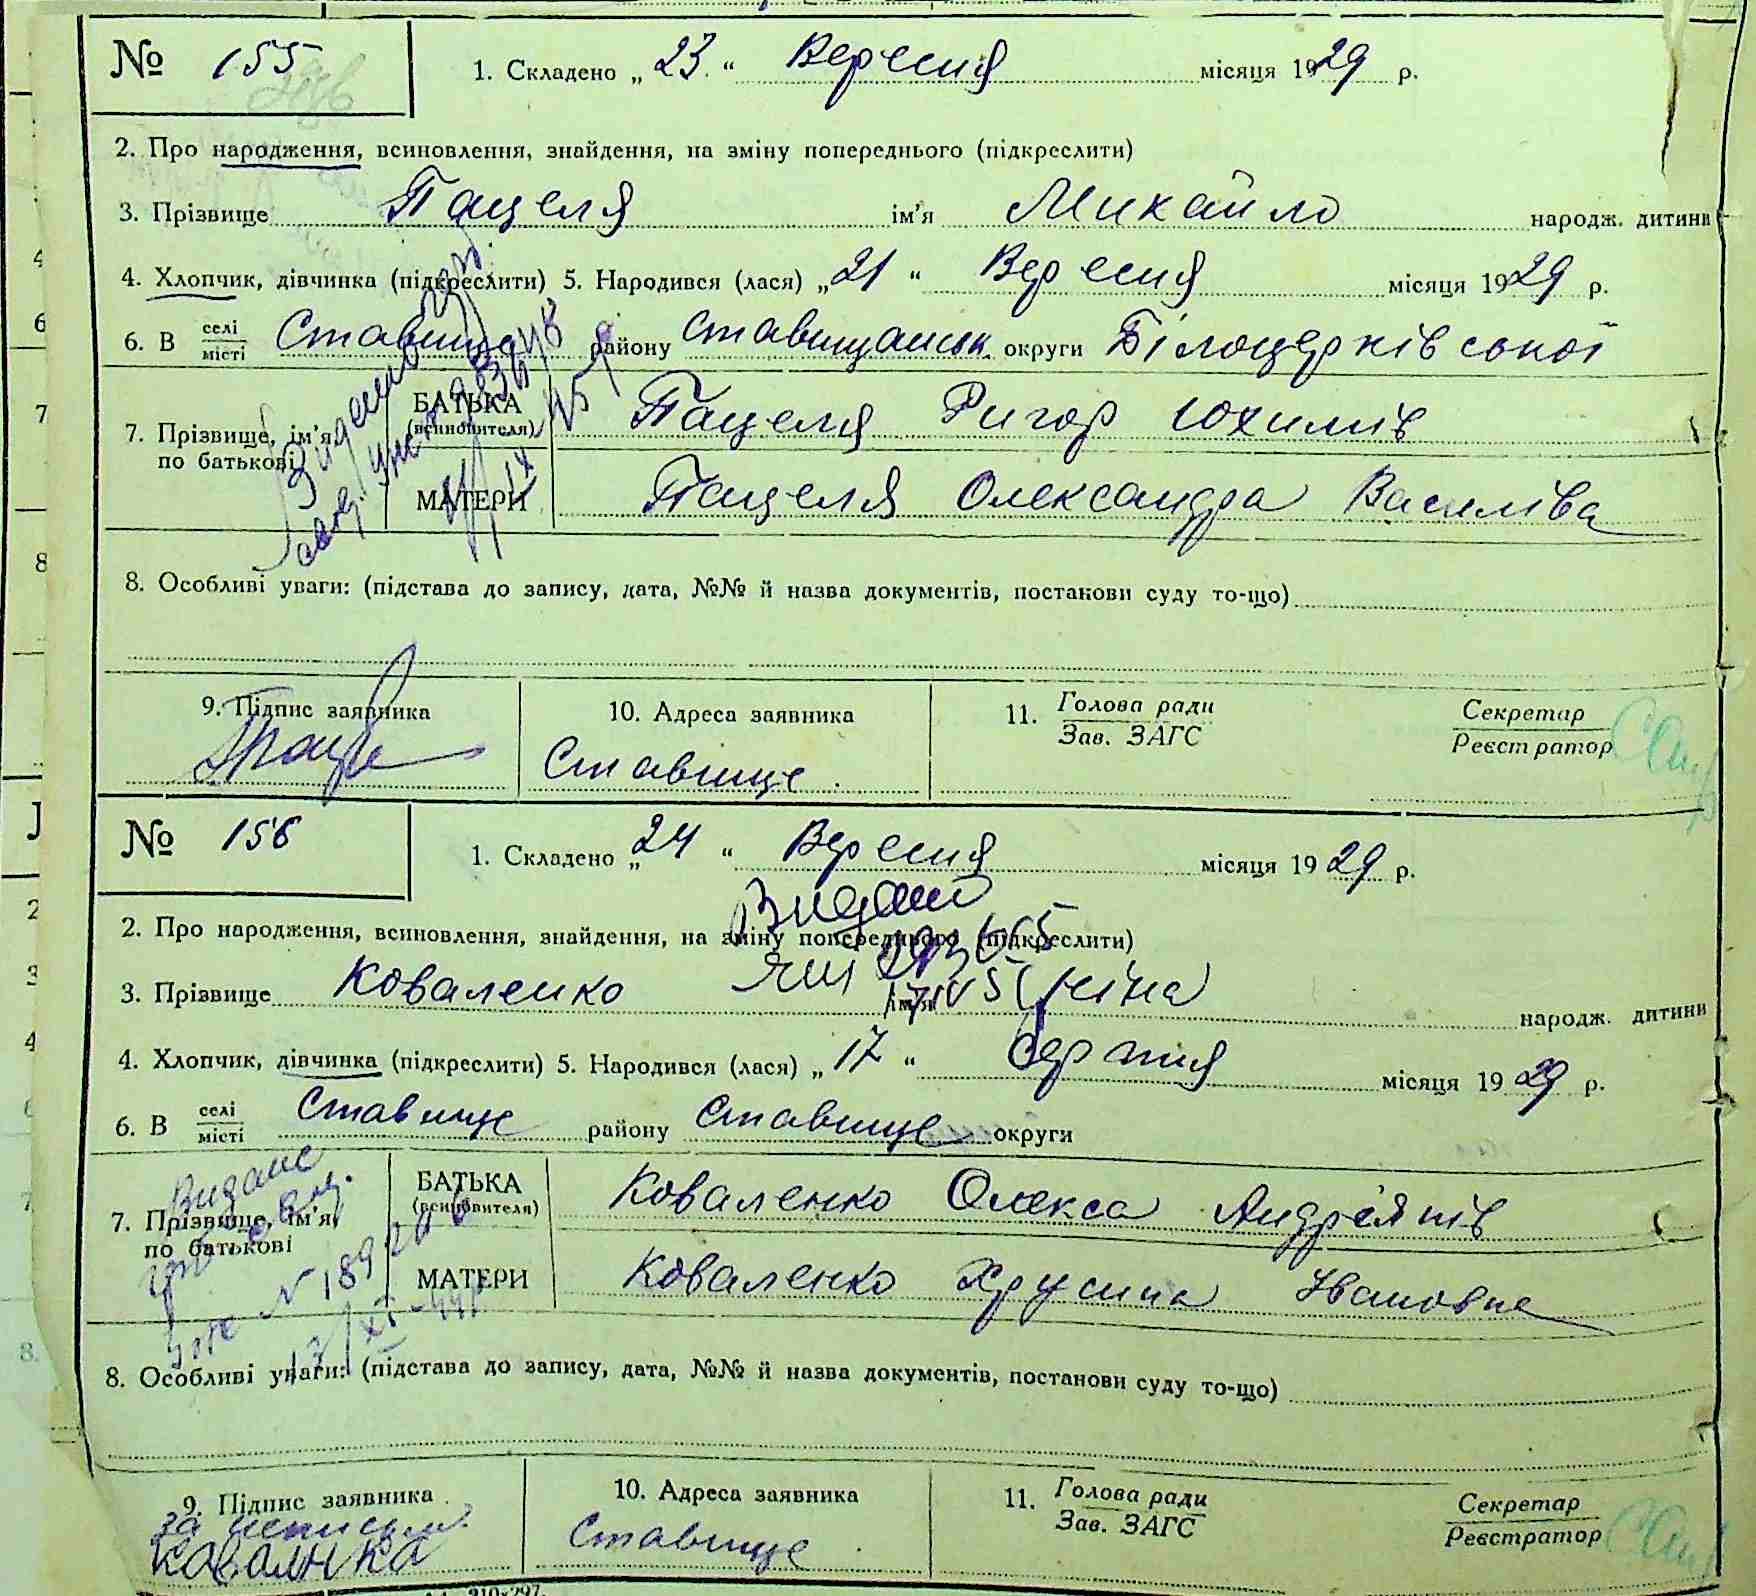 № 155
1. Складено „23.“ Вересня місяця 1929 р.
2. Про народження, всиновлення, знайдення, на зміну попереднього (підкреслити)
3. Прізвище Пацеля ім'я Микайло народж. дитини
4. Хлопчик, дівчинка (підкреслити) 5. Народився (лася) „21“ Вересня місяця 1929 р.
6. В селі місті Ставище району Ставищанськ. округи Білоцерківської
7. Прізвище, ім'я, по батькові
БАТЬКА (всиновителя) Пацеля Ригор Юхимів
МАТЕРИ Пацеля Олександра Василіва
8. Особливі уваги: (підстава до запису, дата, №№ й назва документів, постанови суду то-що)
9. Підпис заявника
10. Адреса заявника
Ставище.
11. Голова ради
Зав. ЗАГС
Секретар
Реєстратор
№ 156
1. Складено „24“ Вересня місяця 1929 р.
Видано
2. Про народження, всиновлення, знайдення, на зміну попереднього (підкреслити)
3. Прізвище Коваленко ім'я Ніна народж. дитини
4. Хлопчик, дівчинка (підкреслити) 5. Народився (лася) „17“ Серпня місяця 1929 р.
6. В селі місті Ставище району Ставище округи
Видане
7. Прізвище, ім'я, по батькові
БАТЬКА (всиновителя) Коваленко Олекса Андріянів
МАТЕРИ Коваленко Хрусина Івановна
8. Особливі уваги: (підстава до запису, дата, №№ й назва документів, постанови суду то-що)
9. Підпис заявника
за неписьм.
Коваленка
10. Адреса заявника
Ставище
11. Голова ради
Зав. ЗАГС
Секретар
Реєстратор
210×297.